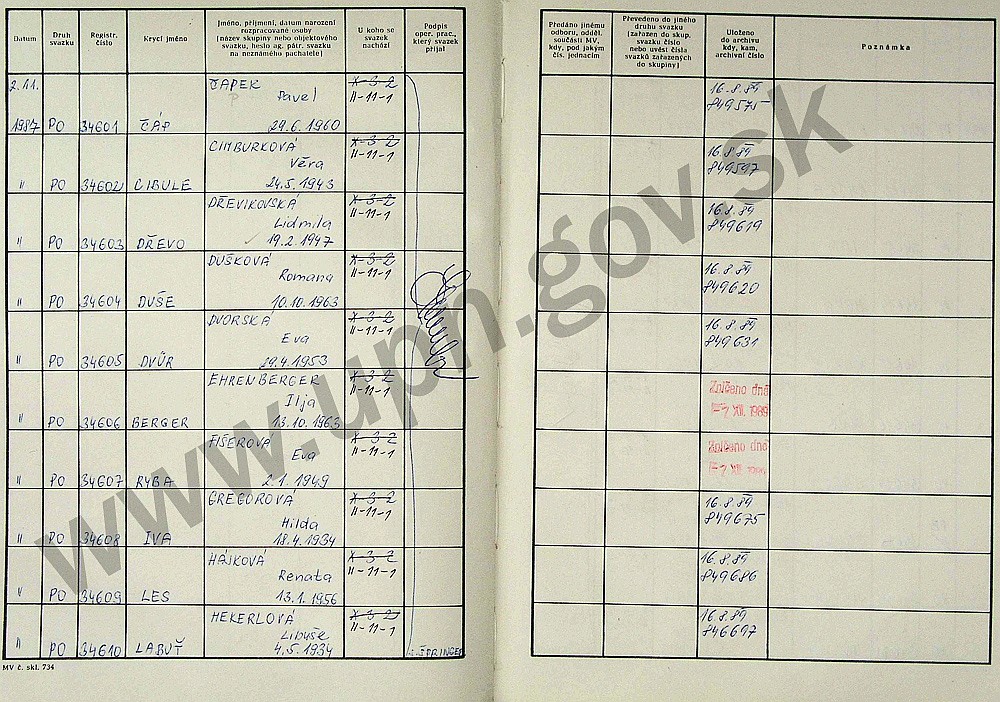 Datum
Druh
svazku
Registr.
číslo
Krycí jméno
Jméno, příjmení, datum narození
rozpracované osoby
(název skupiny nebo objektového
svazku, heslo ag. pátr. svazku
na neznámého pachatele)
U koho se
svazek
nachází
Podpis
oper. prac.,
který svazek
přijal
Předáno jinému
odboru, odděl.
součásti MV,
kdy, pod jakým
čís. jednacím
Převedeno do jiného
druhu svazku
(zařazen do skup.
svazku číslo
nebo uvést čísla
svazků zařazených
do skupiny)
Uloženo
do archívu
kdy, kam,
archivní číslo
Poznámka
2.11. ČAPEK X-3-2 16.8.89
Pavel II-11-1 849575
1987 PO 34601 ČÁP 29.6.1960
CIMBURKOVÁ X-3-2 16.8.89
Věra II-11-1 849597
" PO 34602 CIBULE 24.5.1943
DŘEVIKOVSKÁ X-3-2 16.8.89
Lidmila II-11-1 849619
" PO 34603 DŘEVO 19.2.1947
DUŠKOVÁ X-3-2 16.8.89
Romana II-11-1 849620
" PO 34604 DUŠE 10.10.1963
DVORSKÁ X-3-2 16.8.89
Eva II-11-1 849631
" PO 34605 DVŮR 29.4.1953
EHRENBERGER X-3-2 Zničeno dne
Ilja II-11-1 -7 XII. 1989
" PO 34606 BERGER 13.10.1963
FIŠEROVÁ X-3-2 Zničeno dne
Eva II-11-1 -7 XII.
" PO 34607 RYBA 2.1.1949
GREGOROVÁ X-3-2 16.8.89
Hilda II-11-1 849675
" PO 34608 IVA 18.4.1934
HÁJKOVÁ X-3-2 16.8.89
Renata II-11-1 849686
" PO 34609 LES 13.1.1956
HEKERLOVÁ X-3-2 16.8.89
Libuše II-11-1 846697
" PO 34610 LABUŤ 4.5.1934 ŠPRINGER
MV č. skl. 734
www.upn.gov.sk